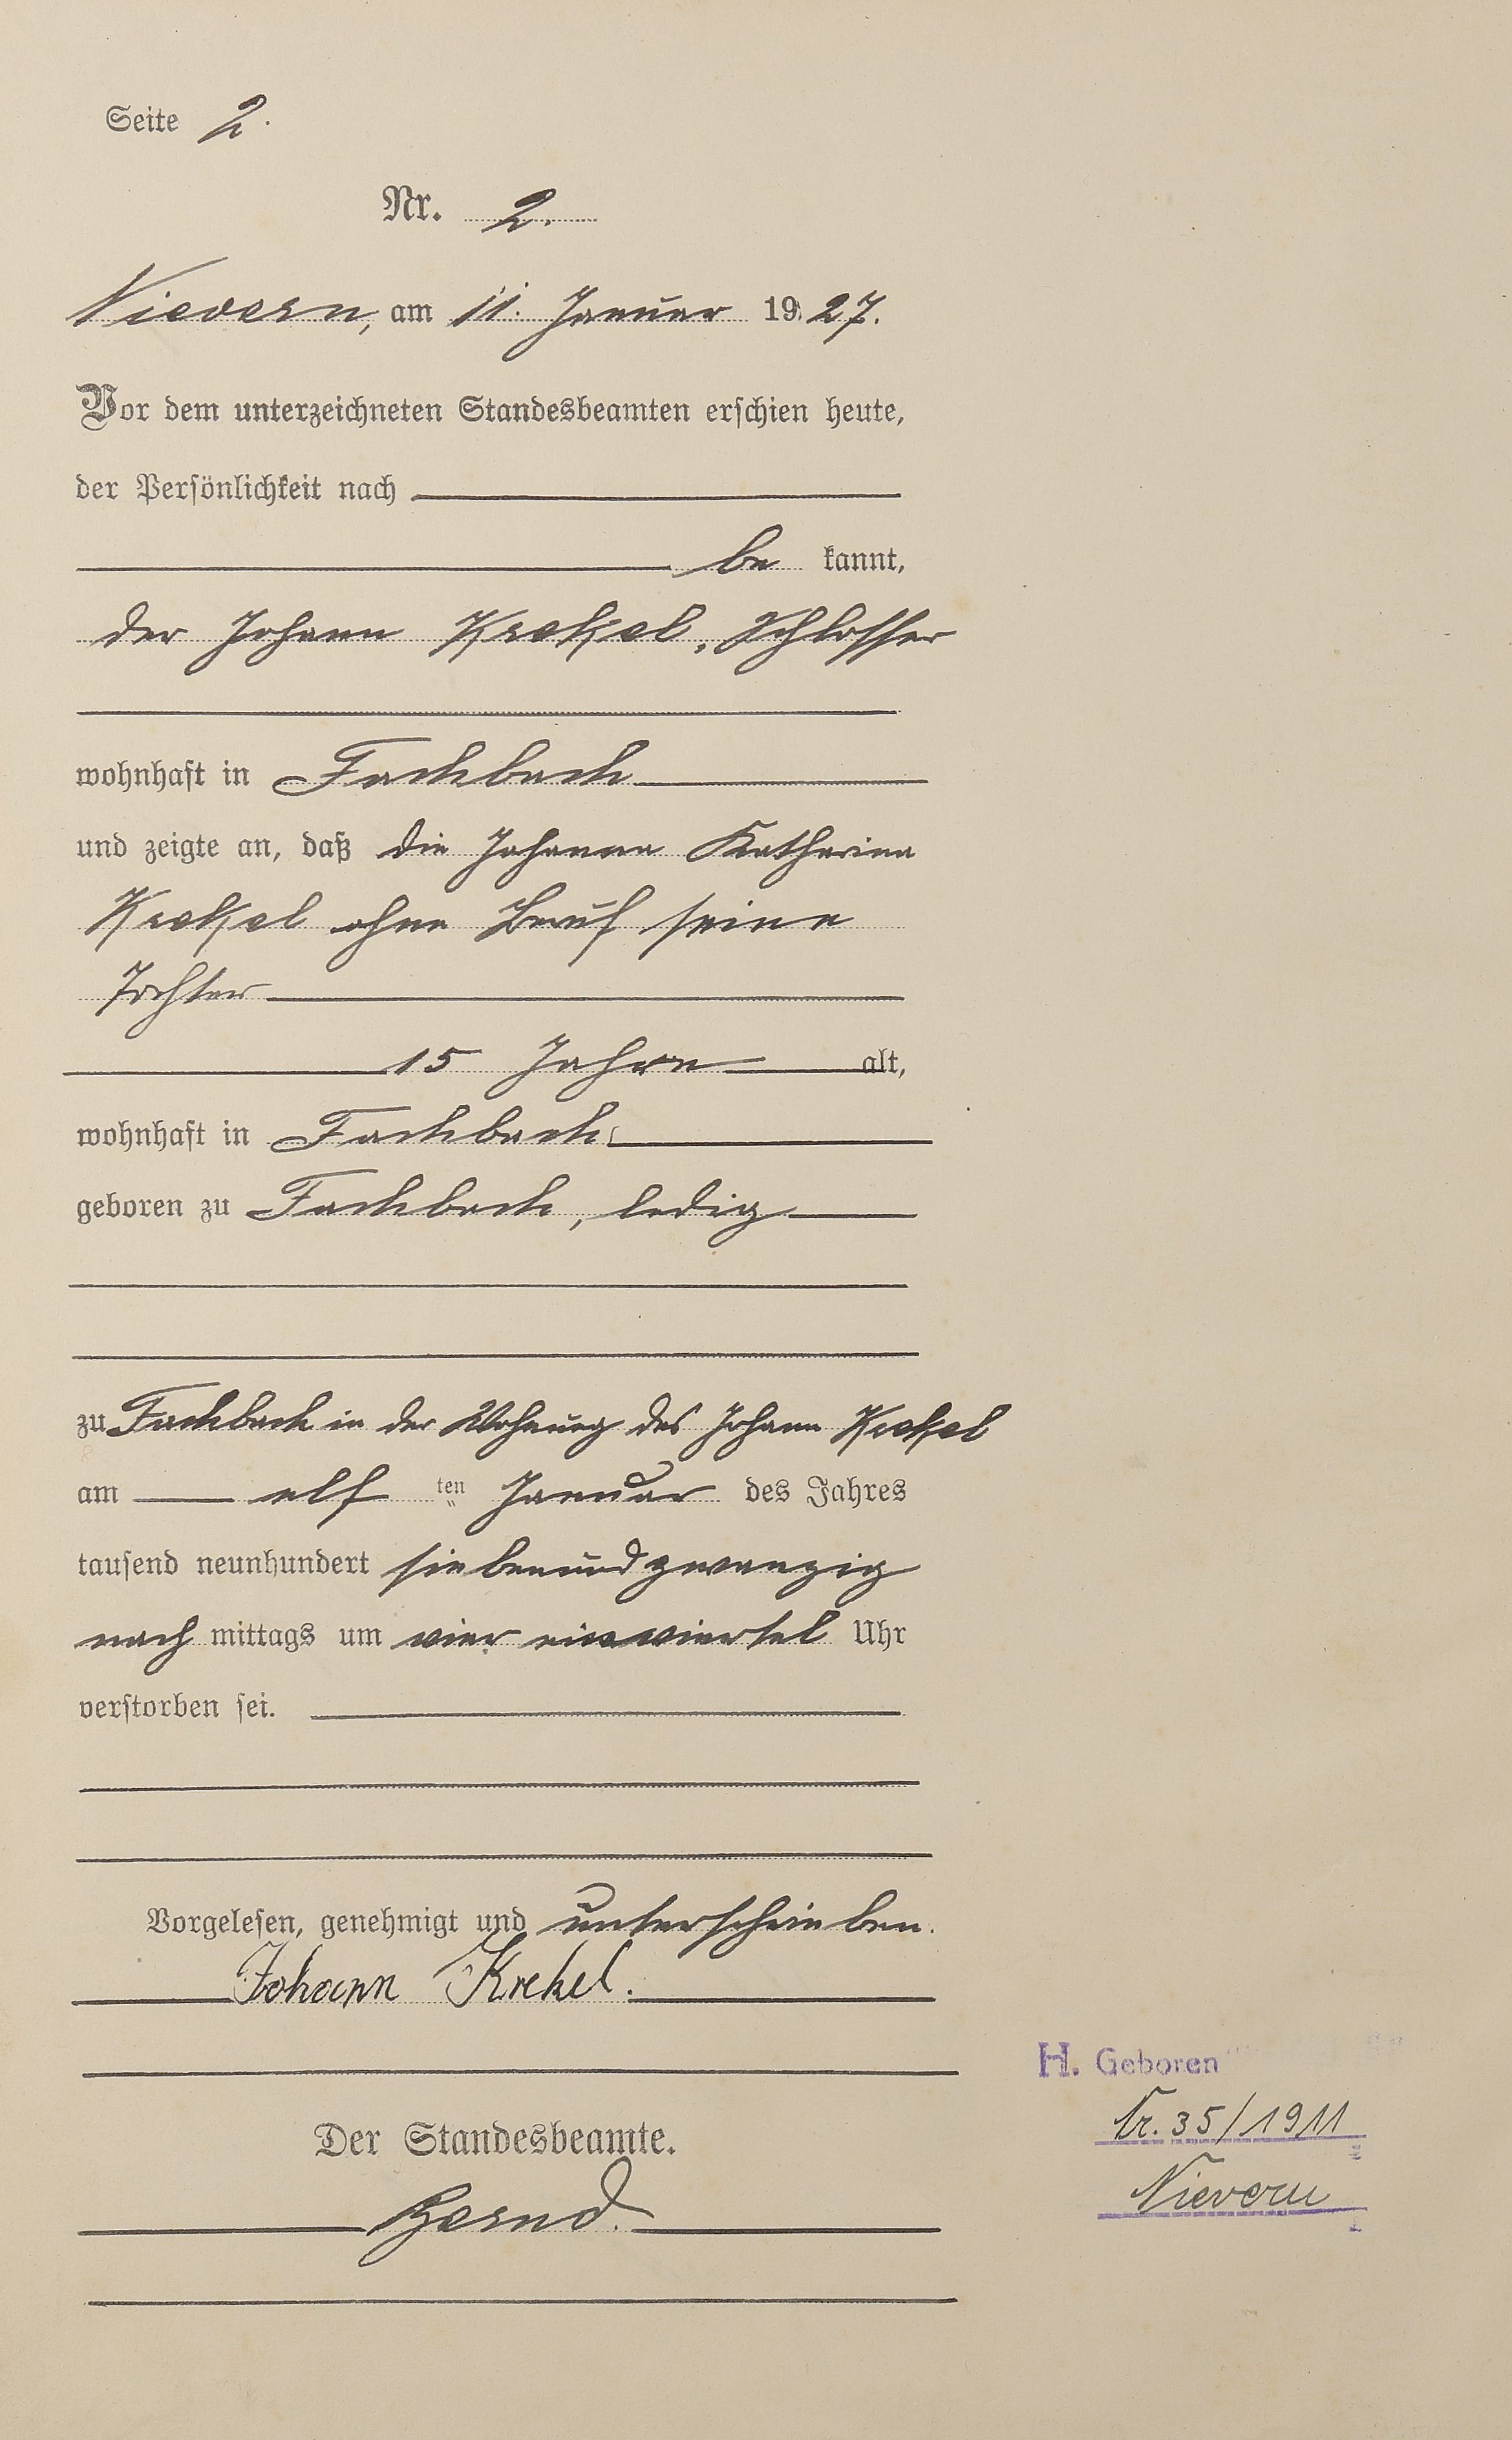 Seite 2.
Nr. 2.
Nievern, am 11. Januar 1927.
Vor dem unterzeichneten Standesbeamten erschien heute,
der Persönlichkeit nach
be kannt,
der Johann Krekel, Schlosser
wohnhaft in Fachbach
und zeigte an, daß die Johanna Katharina
Krekel ohne Beruf seine
Tochter
15 Jahre alt,
wohnhaft in Fachbach
geboren zu Fachbach, ledig
zu Fachbach in der Wohnung des Johann Krekel
am elf ten Januar des Jahres
tausend neunhundert siebenundzwanzig
nach mittags um vier einviertel Uhr
verstorben sei.
Vorgelesen, genehmigt und unterschrieben.
Johann Krekel.
Der Standesbeamte.
H. Geboren
Nr. 35/1911
Nievern